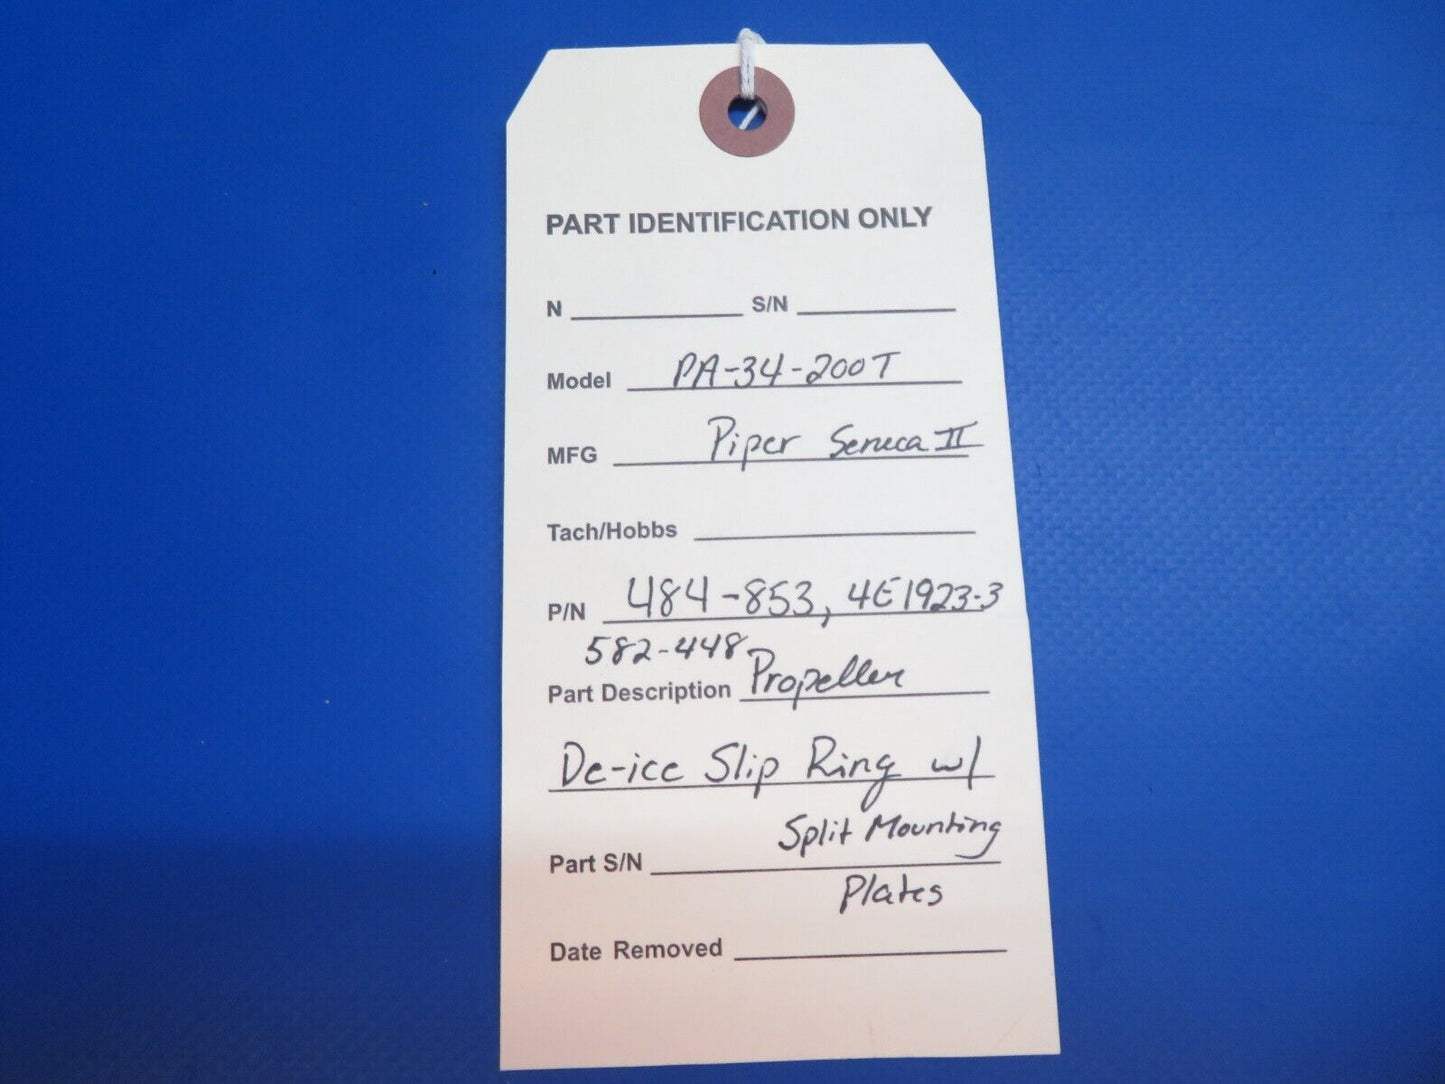 PART IDENTIFICATION ONLY
N S/N
Model PA-34-200T
MFG Piper Seneca II
Tach/Hobbs
P/N 484-853, 4E1923-3
582-448
Part Description Propeller
De-ice Slip Ring w/
Split Mounting
Part S/N
Plates
Date Removed